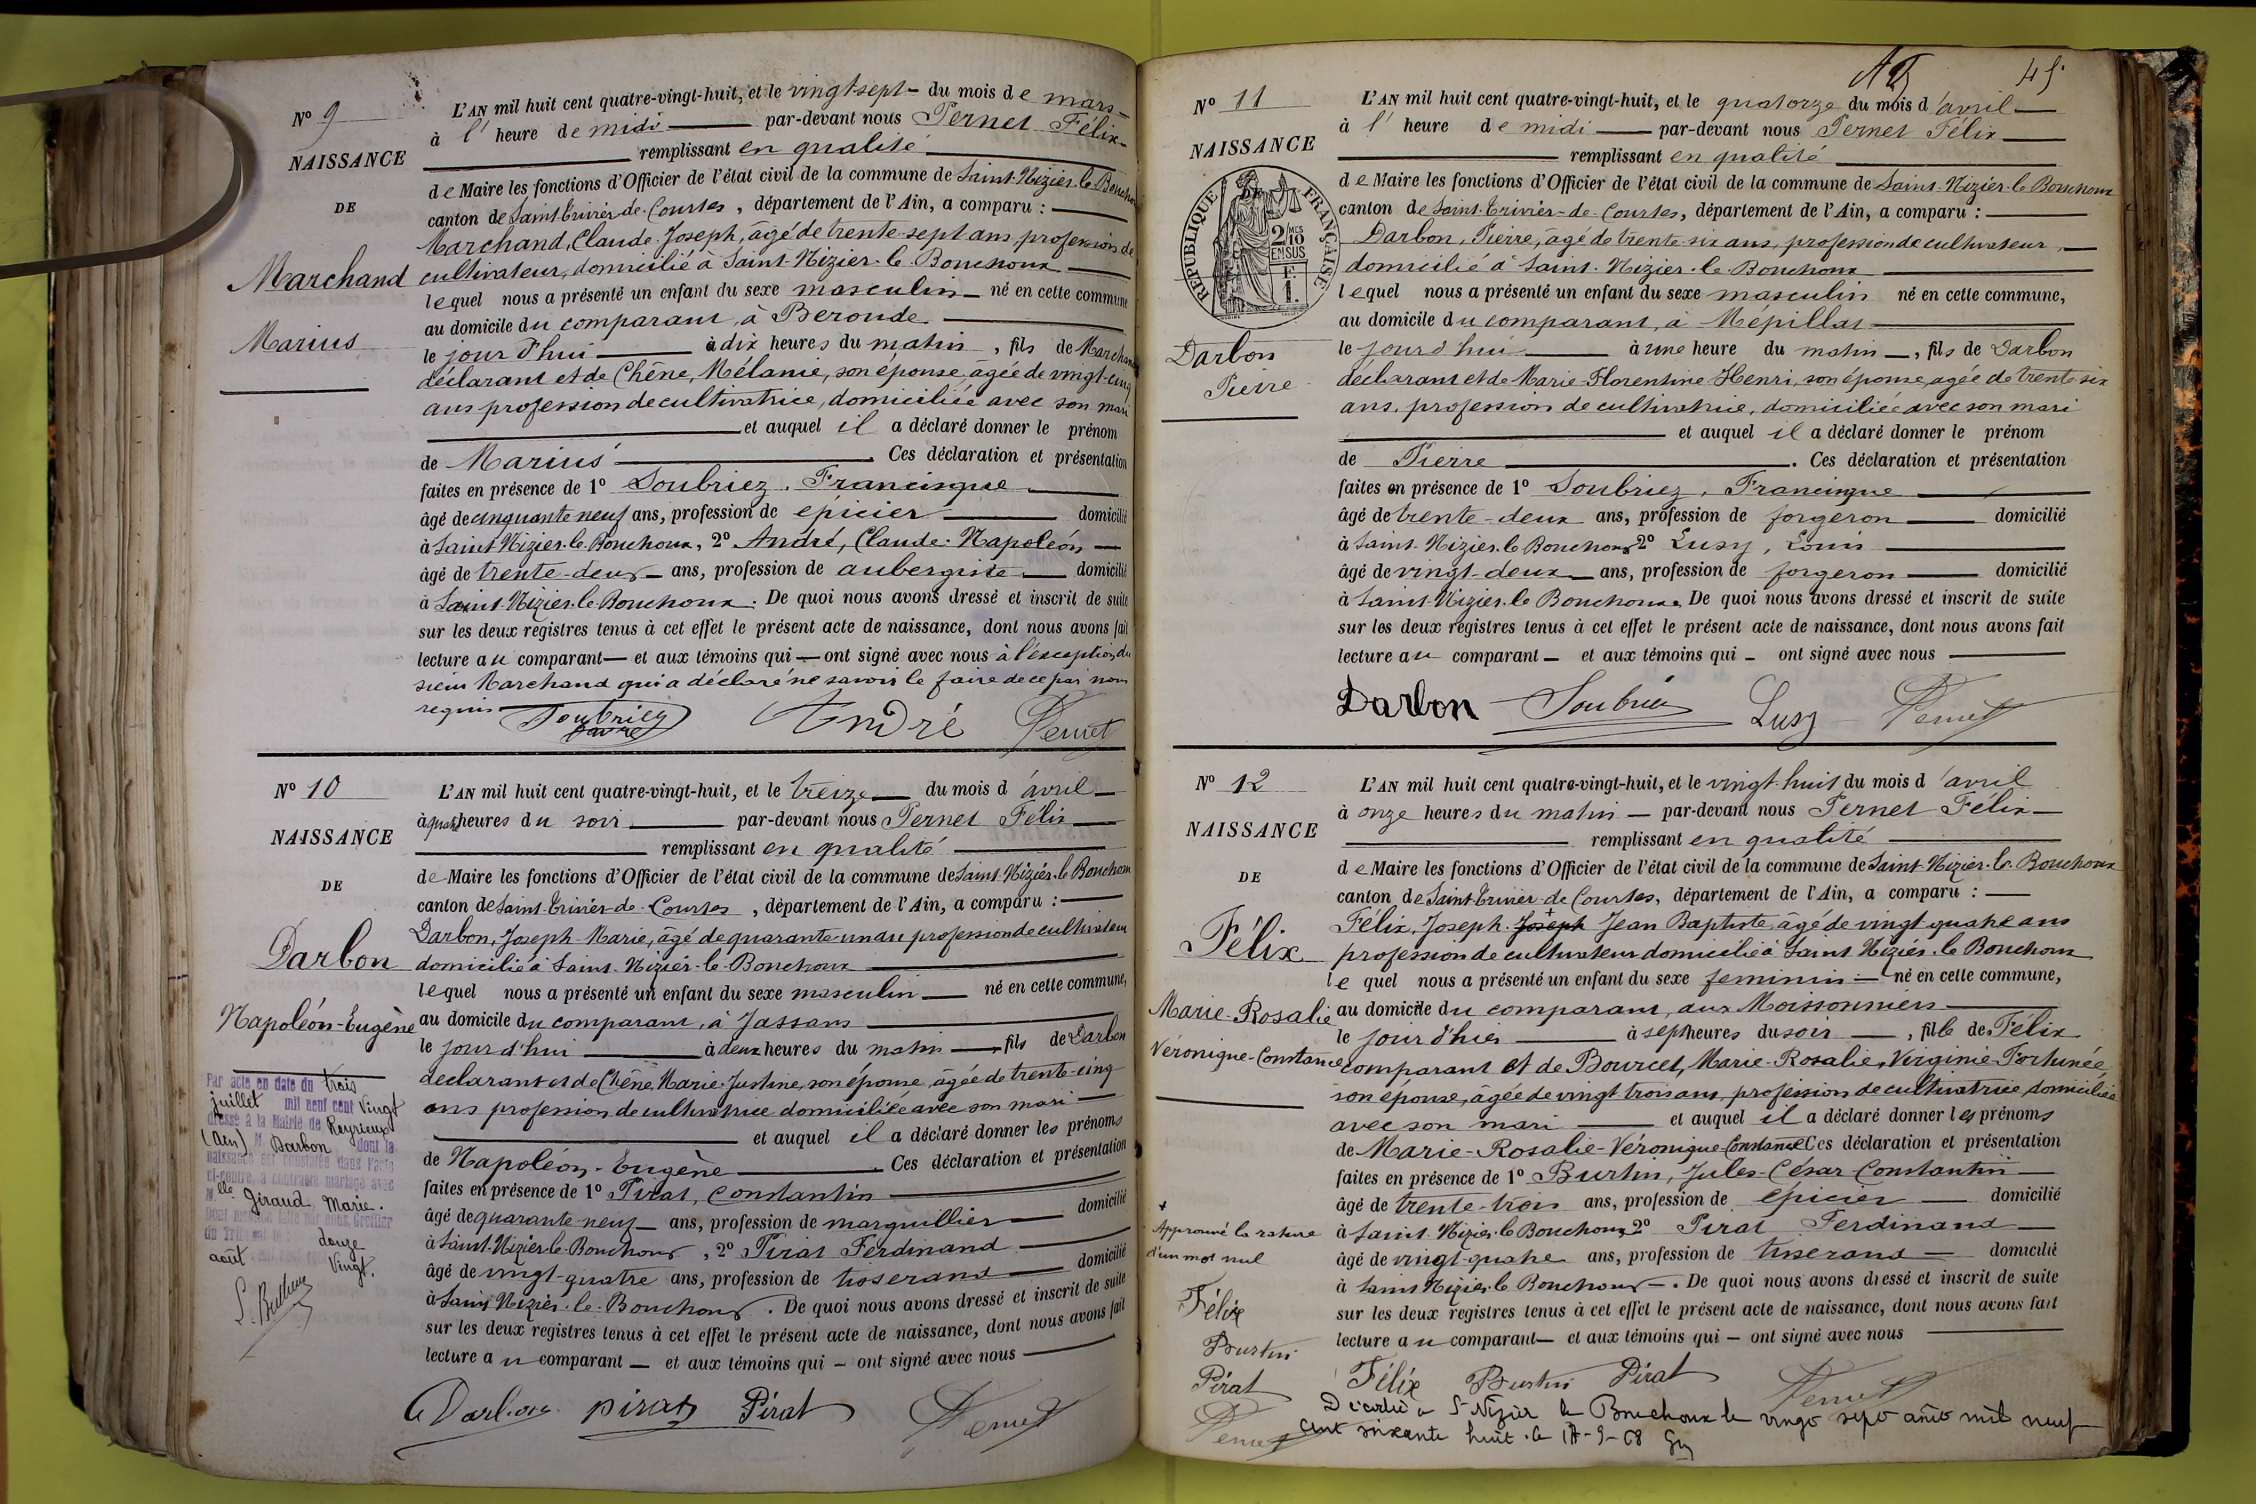 N° 9
NAISSANCE
DE
Marchand
Marius
L'AN mil huit cent quatre-vingt-huit, et le vingt-sept du mois de mars
à l' heure de midi par-devant nous Pernet Félix
remplissant en qualité
de Maire les fonctions d'Officier de l'état civil de la commune de Saint-Nizier-le-Bouchoux
canton de Saint-Trivier-de-Courtes, département de l'Ain, a comparu :
Marchand, Claude-Joseph, âgé de trente-sept ans, profession de
cultivateur, domicilié à Saint-Nizier-le-Bouchoux
lequel nous a présenté un enfant du sexe masculin né en cette commune
au domicile du comparant, à Beroude
le jourd'hui à dix heures du matin, fils de Marchand
déclarant et de Chêne, Mélanie, son épouse, âgée de vingt-cinq
ans profession de cultivatrice, domiciliée avec son mari
et auquel il a déclaré donner le prénom
de Marius Ces déclaration et présentation
faites en présence de 1° Soubriez, Francisque
âgé de cinquante neuf ans, profession de épicier domicilié
à Saint-Nizier-le-Bouchoux, 2° André, Claude-Napoléon
âgé de trente-deux ans, profession de aubergiste domicilié
à Saint-Nizier-le-Bouchoux. De quoi nous avons dressé et inscrit de suite
sur les deux registres tenus à cet effet le présent acte de naissance, dont nous avons fait
lecture au comparant et aux témoins qui ont signé avec nous à l'exception du
sieur Marchand qui a déclaré ne savoir le faire de ce par nous
requis
Soubriez André Pernet
N° 10
NAISSANCE
DE
Darbon
Napoléon-Eugène
Par acte en date du trois
juillet mil neuf cent vingt
dressé à la Mairie de Reyrieux
(Ain) M. Darbon dont la
naissance est constatée dans l'acte
ci-contre, a contracté mariage avec
Mlle Giraud Marie.
Dont mention faite par nous, Greffier
douze
août Vingt.
L'AN mil huit cent quatre-vingt-huit, et le treize du mois d'avril
à quatre heures du soir par-devant nous Pernet Félix
remplissant en qualité
de Maire les fonctions d'Officier de l'état civil de la commune de Saint-Nizier-le-Bouchoux
canton de Saint-Trivier-de-Courtes, département de l'Ain, a comparu :
Darbon, Joseph-Marie, âgé de quarante-un ans profession de cultivateur
domicilié à Saint-Nizier-le-Bouchoux
lequel nous a présenté un enfant du sexe masculin né en cette commune,
au domicile du comparant, à Jassans
le jourd'hui à deux heures du matin, fils de Darbon
déclarant et de Chêne, Marie-Justine, son épouse, âgée de trente-cinq
ans profession de cultivatrice domiciliée avec son mari
et auquel il a déclaré donner les prénoms
de Napoléon-Eugène Ces déclaration et présentation
faites en présence de 1° Pirat, Constantin
âgé de quarante-neuf ans, profession de marguillier domicilié
à Saint-Nizier-le-Bouchoux, 2° Pirat Ferdinand
âgé de vingt-quatre ans, profession de tisserand domicilié
à Saint-Nizier-le-Bouchoux. De quoi nous avons dressé et inscrit de suite
sur les deux registres tenus à cet effet le présent acte de naissance, dont nous avons fait
lecture au comparant et aux témoins qui ont signé avec nous
Darbon pirat Pirat Pernet
45
N° 11
NAISSANCE
RÉPUBLIQUE FRANÇAISE
2/10
EN SUS
F.
1.
Darbon
Pierre
L'AN mil huit cent quatre-vingt-huit, et le quatorze du mois d'avril
à l' heure de midi par-devant nous Pernet Félix
remplissant en qualité
de Maire les fonctions d'Officier de l'état civil de la commune de Saint-Nizier-le-Bouchoux
canton de Saint-Trivier-de-Courtes, département de l'Ain, a comparu :
Darbon, Pierre, âgé de trente-six ans, profession de cultivateur,
domicilié à Saint-Nizier-le-Bouchoux
lequel nous a présenté un enfant du sexe masculin né en cette commune,
au domicile du comparant, à Mépillat
le jourd'hui à une heure du matin, fils de Darbon
déclarant et de Marie-Florentine Henri, son épouse, agée de trente-six
ans, profession de cultivatrice, domiciliée avec son mari
et auquel il a déclaré donner le prénom
de Pierre. Ces déclaration et présentation
faites en présence de 1° Soubriez, Francisque
âgé de trente-deux ans, profession de forgeron domicilié
à Saint-Nizier-le-Bouchoux 2° Lusy, Louis
âgé de vingt-deux ans, profession de forgeron domicilié
à Saint-Nizier-le-Bouchoux. De quoi nous avons dressé et inscrit de suite
sur les deux registres tenus à cet effet le présent acte de naissance, dont nous avons fait
lecture au comparant et aux témoins qui ont signé avec nous
Darbon Soubriez Lusy Pernet
N° 12
NAISSANCE
DE
Félix
Marie-Rosalie
Véronique-Constance
+
Approuvé la rature
d'un mot nul
Félix
Burtin
Pirat
Pernet
L'AN mil huit cent quatre-vingt-huit, et le vingt-huit du mois d'avril
à onze heures du matin par-devant nous Pernet Félix
remplissant en qualité
de Maire les fonctions d'Officier de l'état civil de la commune de Saint-Nizier-le-Bouchoux
canton de Saint-Trivier-de-Courtes, département de l'Ain, a comparu :
Félix, Joseph-Joseph + Jean Baptiste, âgé de vingt-quatre ans
profession de cultivateur domicilié à Saint-Nizier-le-Bouchoux
lequel nous a présenté un enfant du sexe feminin né en cette commune,
au domicile du comparant, aux Moissonniers
le jour d'hier à sept heures du soir, fille de Félix
comparant et de Bourcet, Marie-Rosalie, Virginie-Fortunée,
son épouse, âgée de vingt trois ans, profession de cultivatrice, domiciliée
avec son mari et auquel il a déclaré donner les prénoms
de Marie-Rosalie-Véronique-Constance Ces déclaration et présentation
faites en présence de 1° Burtin, Jules-César-Constantin
âgé de trente-trois ans, profession de épicier domicilié
à Saint-Nizier-le-Bouchoux 2° Pirat Ferdinand
âgé de vingt-quatre ans, profession de tisserand domicilié
à Saint-Nizier-le-Bouchoux. De quoi nous avons dressé et inscrit de suite
sur les deux registres tenus à cet effet le présent acte de naissance, dont nous avons fait
lecture au comparant et aux témoins qui ont signé avec nous
Félix Burtin Pirat Pernet
Décédée à St Nizier le Bouchoux le vingt sept août mil neuf
cent soixante huit. le 17-9-68